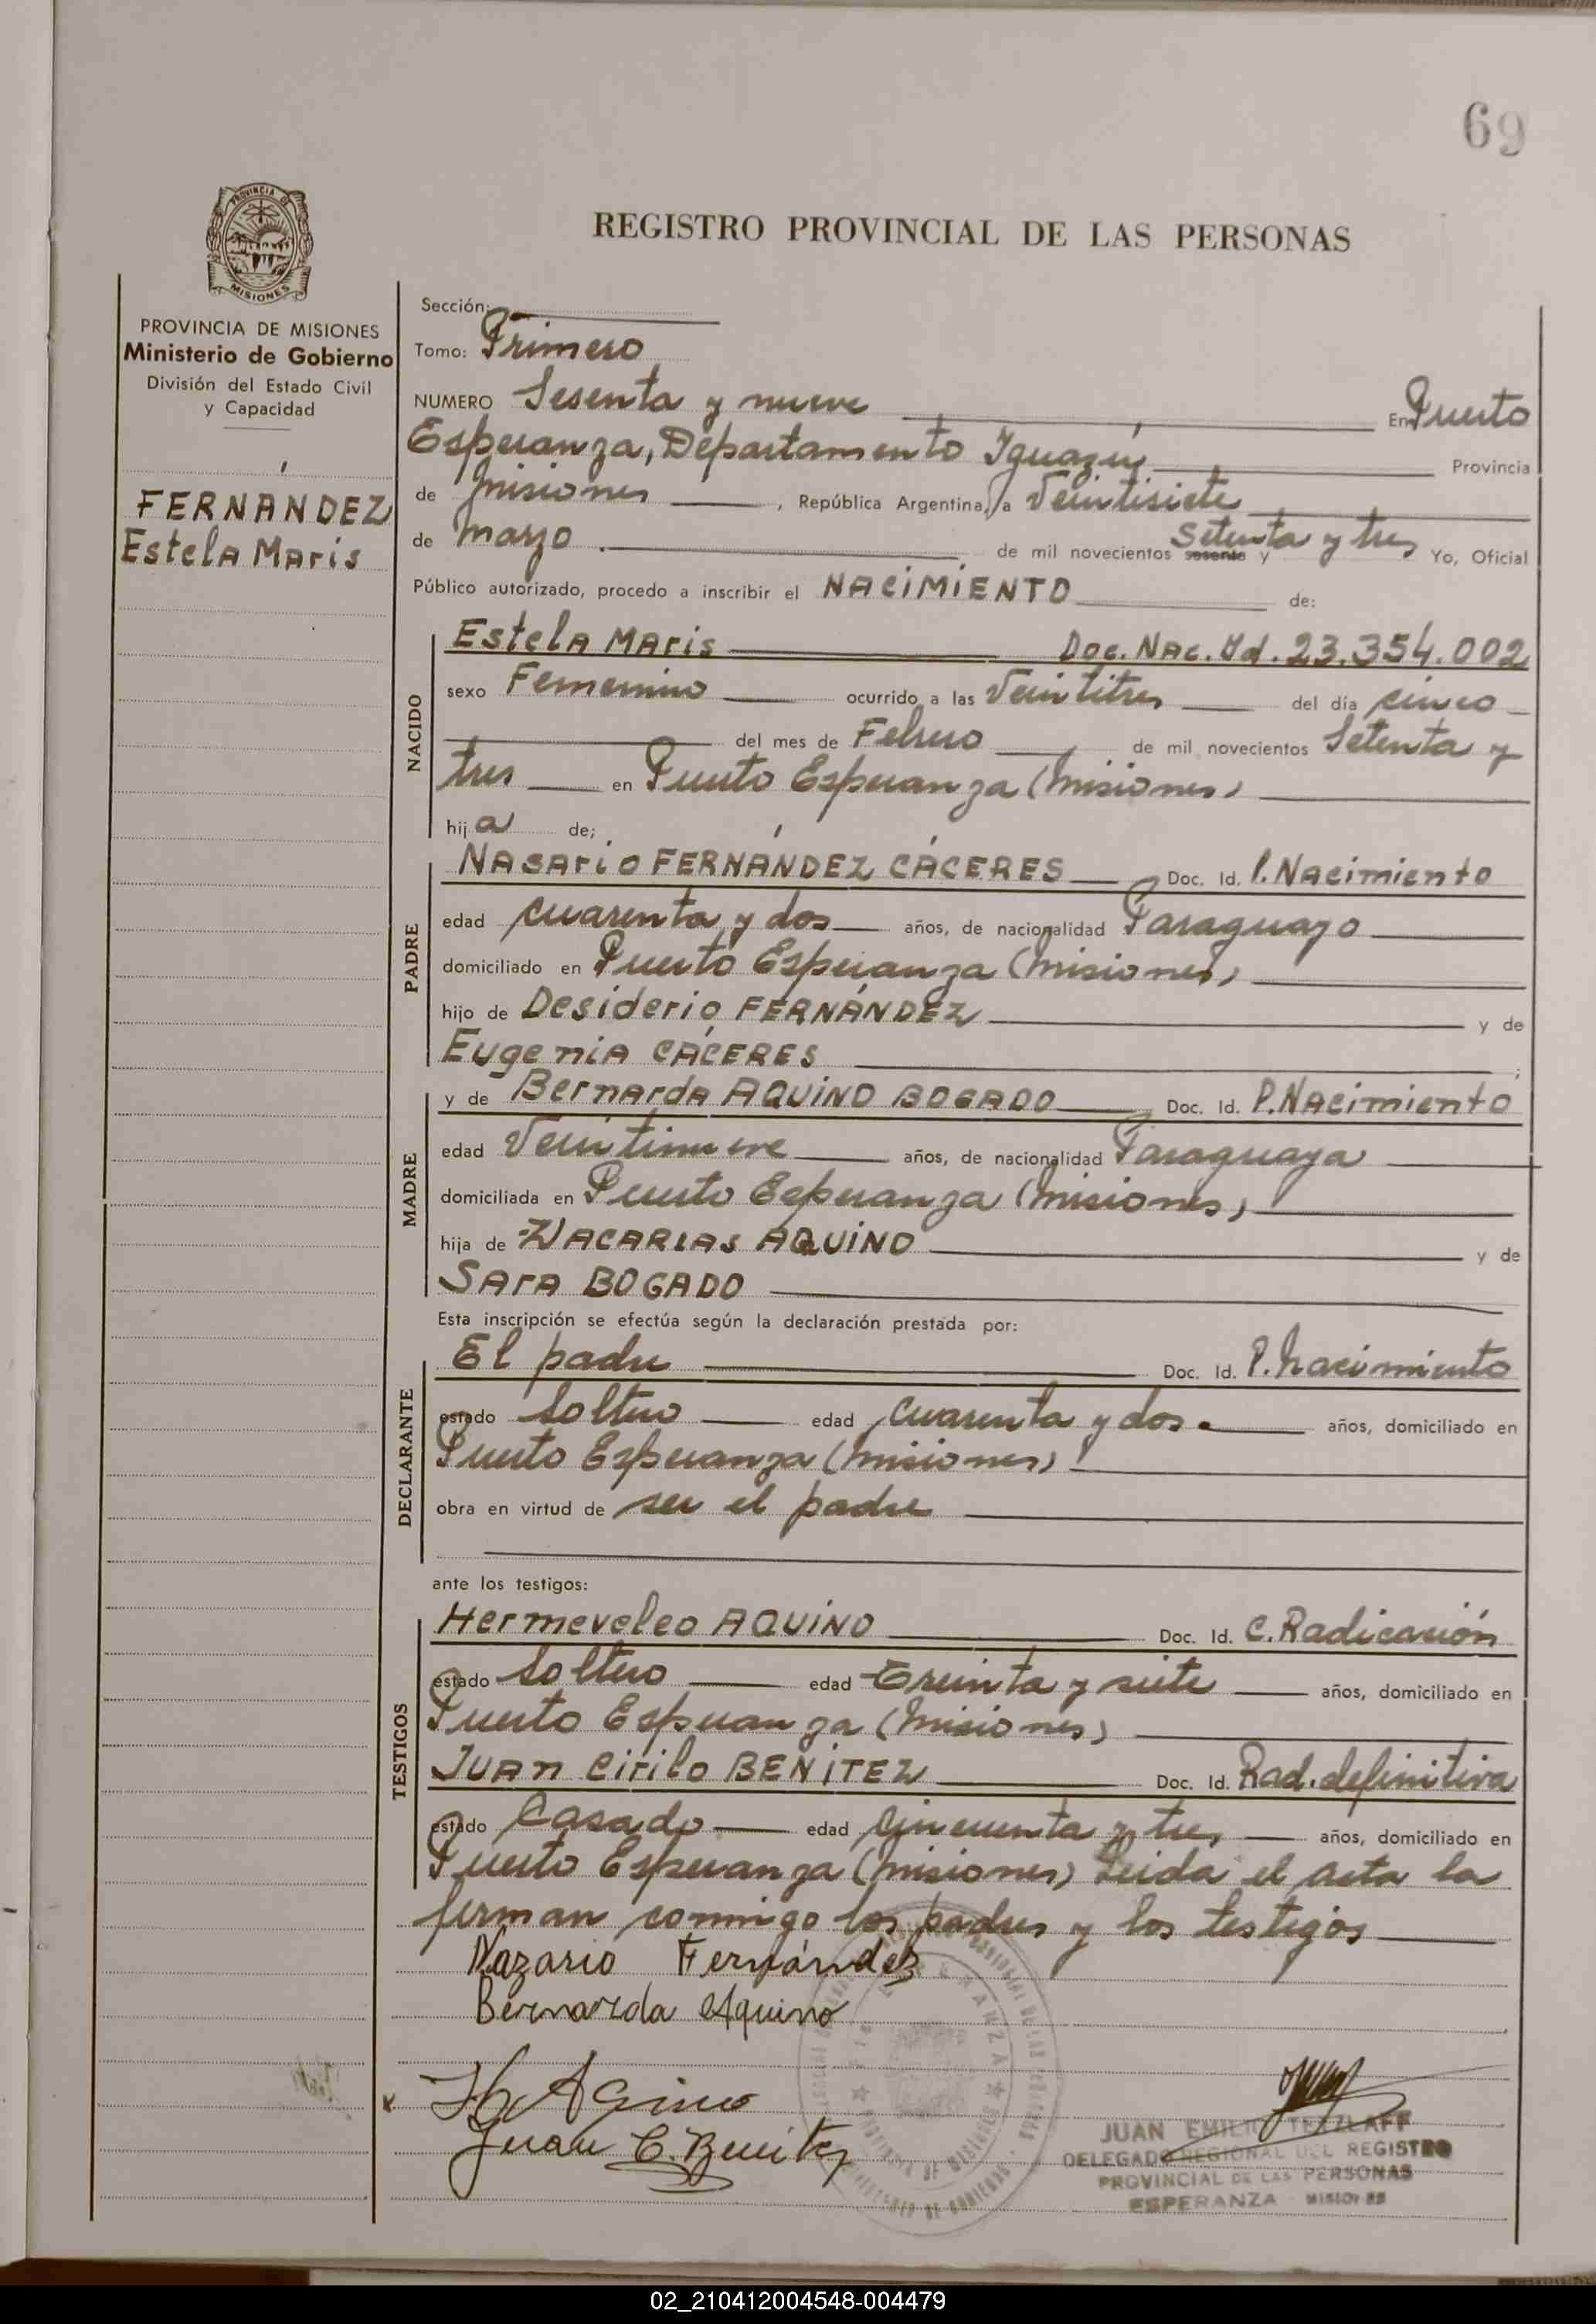 69
PROVINCIA DE
MISIONES
REGISTRO PROVINCIAL DE LAS PERSONAS
PROVINCIA DE MISIONES
Ministerio de Gobierno
División del Estado Civil
y Capacidad
FERNÁNDEZ
Estela Maris
Sección:
Tomo: Primero
NUMERO Sesenta y nueve En Puerto
Esperanza, Departamento Iguazú Provincia
de Misiones , República Argentina, a Veintisiete
de marzo de mil novecientos sesenta y Setenta y tres Yo, Oficial
Público autorizado, procedo a inscribir el NACIMIENTO de:
NACIDO
Estela Maris Doc. Nac. Id. 23.354.002
sexo Femenino ocurrido a las Veintitres del día cinco
del mes de Febrero de mil novecientos Setenta y
tres en Puerto Esperanza (Misiones)
hija de;
PADRE
Nasario FERNÁNDEZ CÁCERES Doc. Id. P. Nacimiento
edad cuarenta y dos años, de nacionalidad Paraguayo
domiciliado en Puerto Esperanza (Misiones)
hijo de Desiderio FERNÁNDEZ y de
Eugenia CÁCERES ;
MADRE
y de Bernarda AQUINO BOGADO Doc. Id. P. Nacimiento
edad Veintinueve años, de nacionalidad Paraguaya
domiciliada en Puerto Esperanza (Misiones)
hija de ZACARIAS AQUINO y de
Sara BOGADO
Esta inscripción se efectúa según la declaración prestada por:
DECLARANTE
El padre Doc. Id. P. Nacimiento
estado Soltero edad cuarenta y dos. años, domiciliado en
Puerto Esperanza (Misiones)
obra en virtud de ser el padre
ante los testigos:
TESTIGOS
Hermeveleo AQUINO Doc. Id. C. Radicación
estado Soltero edad Treinta y siete años, domiciliado en
Puerto Esperanza (Misiones)
Juan Cirilo BENÍTEZ Doc. Id. Rad. definitiva
estado Casado edad Cincuenta y tres años, domiciliado en
Puerto Esperanza (Misiones) Leida el acta la
firman conmigo los padres y los testigos
Nazario Fernández
Bernarda Aquino
H Aquino
Juan C. Benitez
JUAN EMILIO TETZLAFF
DELEGADO REGIONAL DEL REGISTRO
PROVINCIAL DE LAS PERSONAS
ESPERANZA - MISIONES
02_210412004548-004479